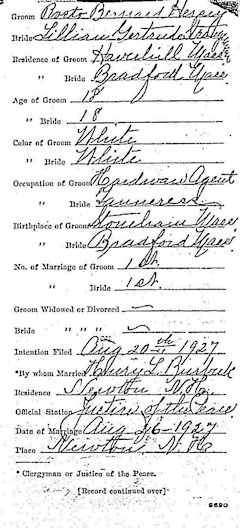 Groom Bernard Hersey
Bride Lillian Gertrude
Residence of Groom Haverhill Mass
" Bride Bradford Mass
Age of Groom 18
" Bride 18
Color of Groom White
" Bride White
Occupation of Groom Hardware Agent
" Bride
Birthplace of Groom Stoneham Mass
" Bride Bradford Mass
No. of Marriage of Groom 1st
" Bride 1st.
Groom Widowed or Divorced
Bride " " "
Intention Filed Aug 20th 1927
*By whom Married Henry L.
Residence Newton N.H.
Official Station Justice of the Peace
Date of Marriage Aug 26-1927
Place Newton. N.H
* Clergyman or Justice of the Peace.
[Record continued over]